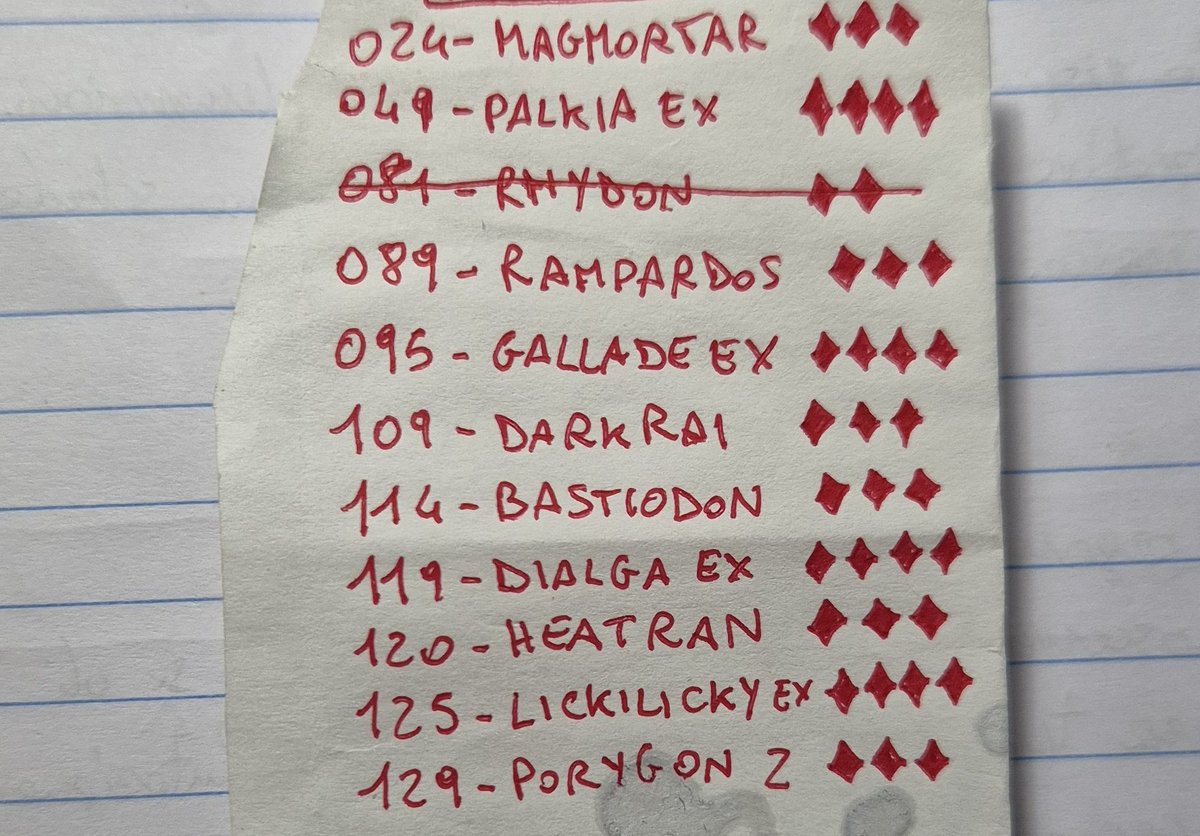 024- MAGMORTAR ♦♦♦
049 - PALKIA EX ♦♦♦♦
081 - RHYDON ♦♦
089 - RAMPARDOS ♦♦♦
095 - GALLADE EX ♦♦♦♦
109 - DARKRAI ♦♦♦
114 - BASTIODON ♦♦♦
119 - DIALGA EX ♦♦♦♦
120 - HEATRAN ♦♦♦
125 - LICKILICKY EX ♦♦♦♦
129 - PORYGON Z ♦♦♦